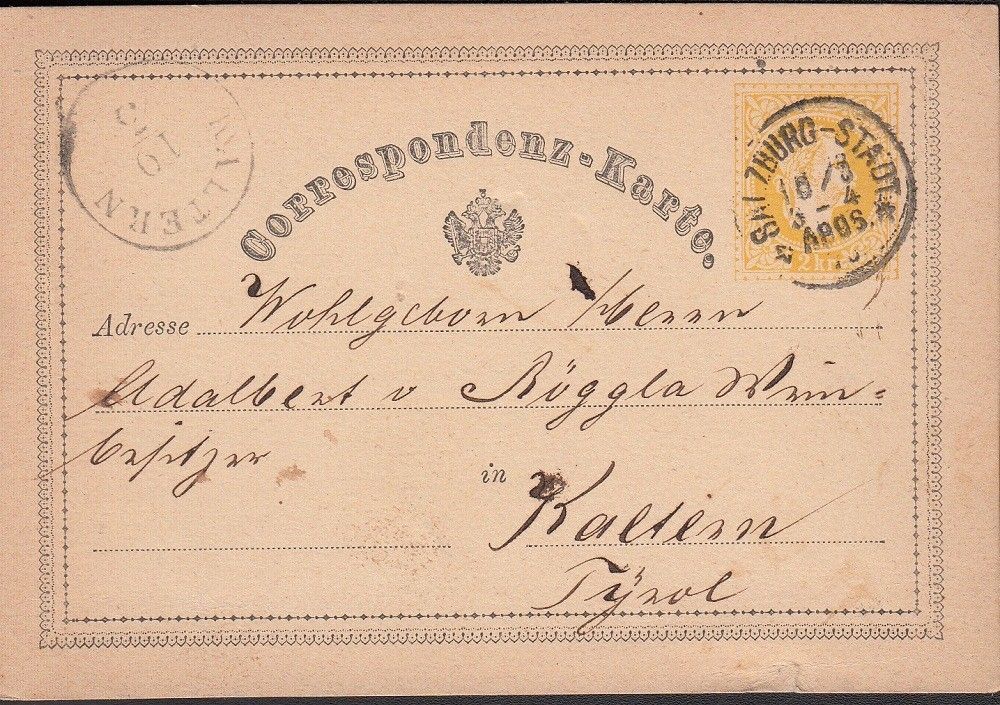 KALTERN
10
Correspondenz-Karte.
SALZBURG-STADT
8/3
3-4
APOS.
Adresse Wohlgeborn Herrn
Adalbert v Röggla Wein-
besitzer
in Kaltern
Tÿrol